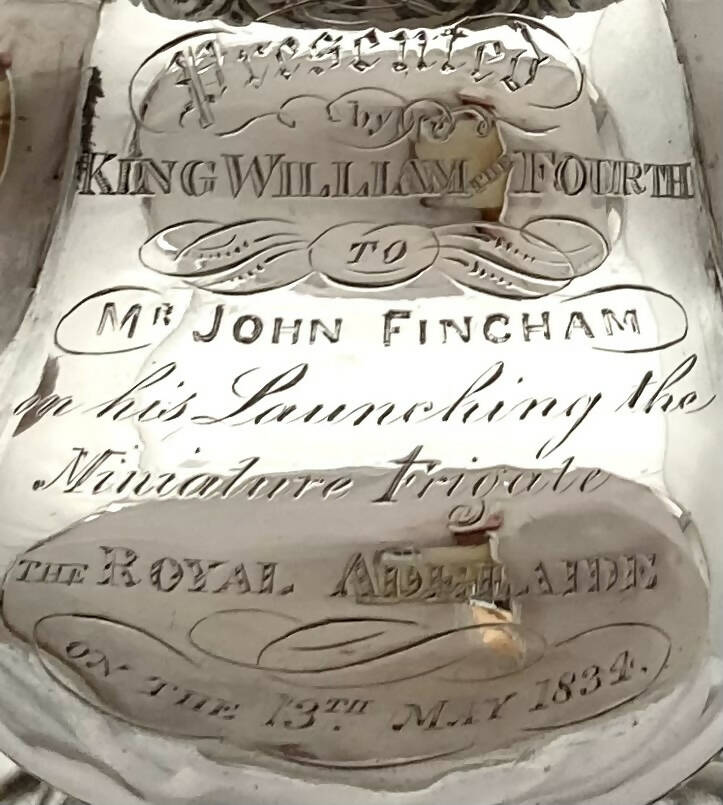 Presented
by
KING WILLIAM THE FOURTH
TO
MR JOHN FINCHAM
on his Launching the
Miniature Frigate
THE ROYAL ADELAIDE
ON THE 13TH MAY 1834.